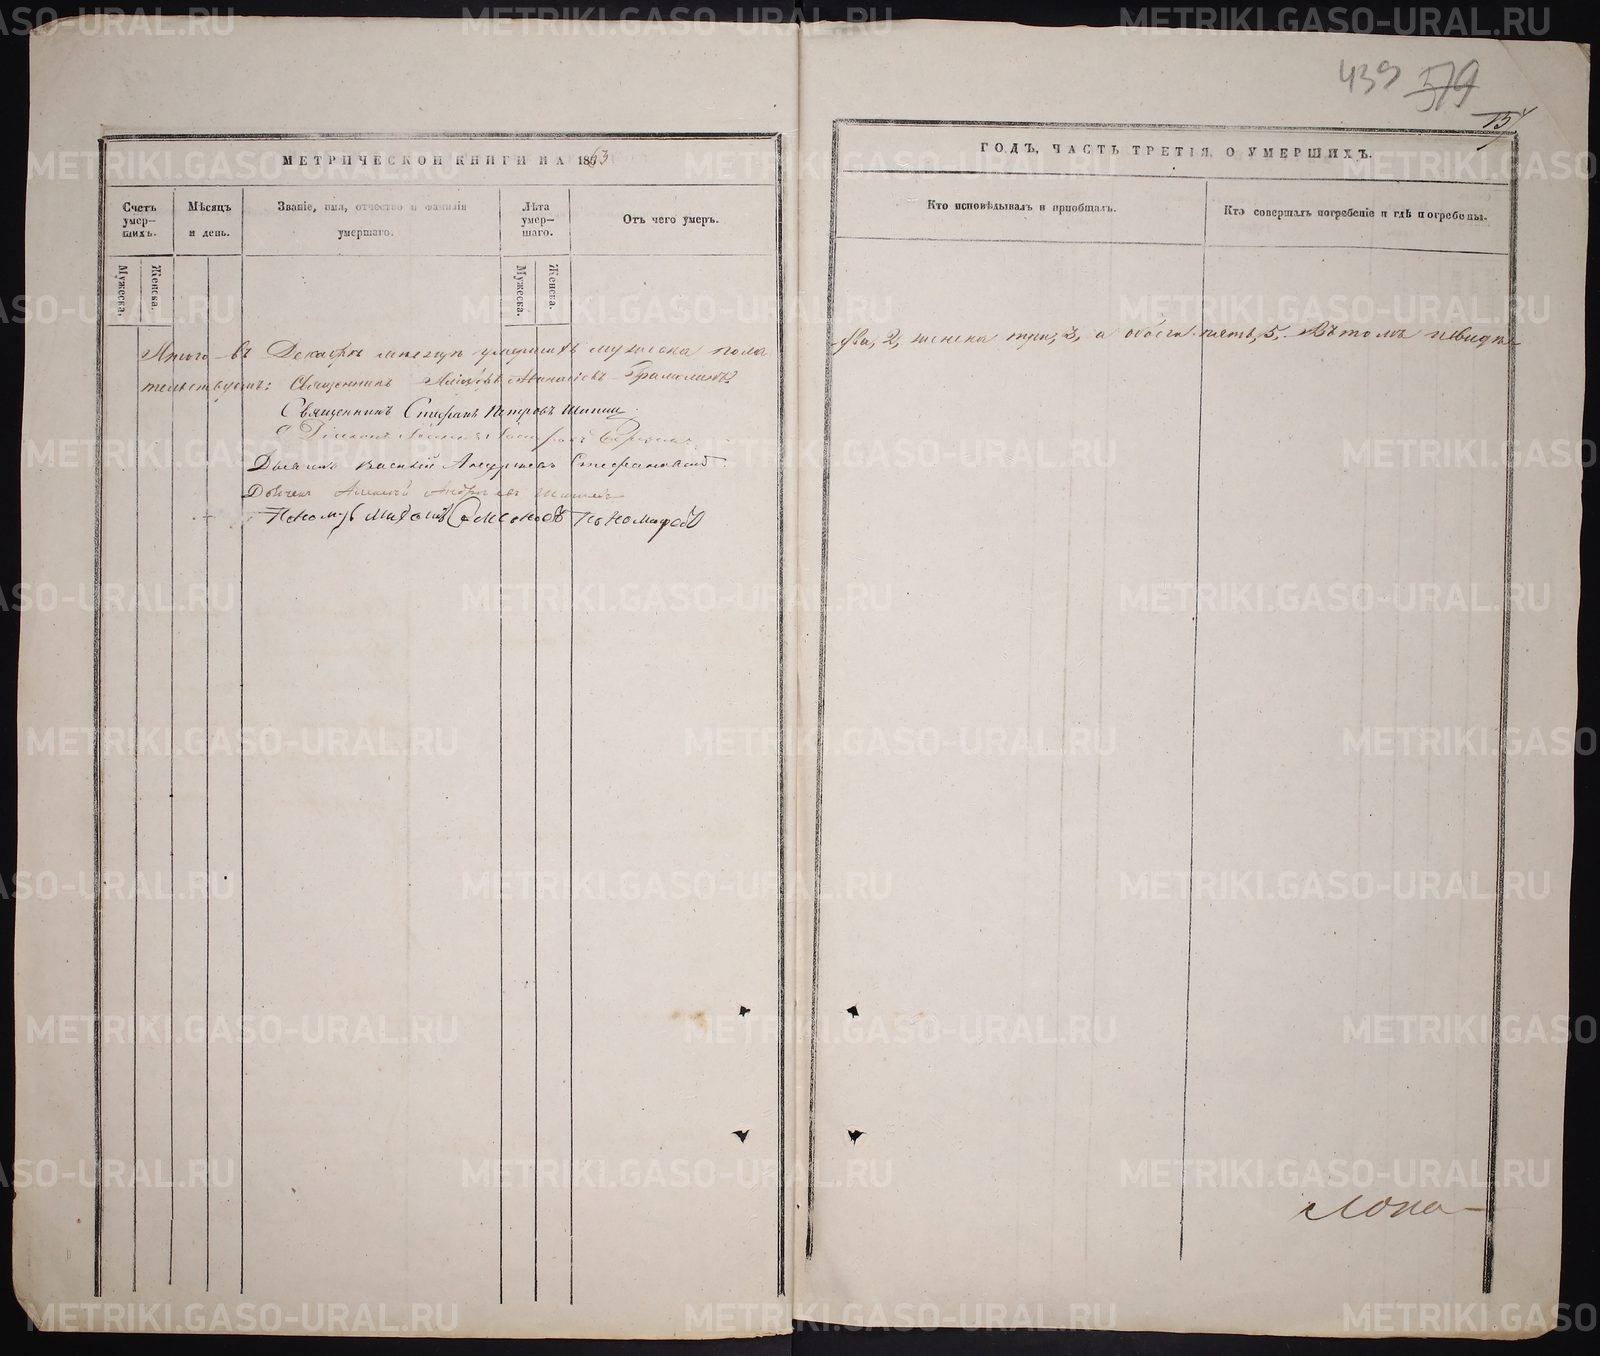 439 579
МЕТРИЧЕСКОЙ КНИГИ НА 1863
ГОДЪ, ЧАСТЬ ТРЕТІЯ, О УМЕРШИХЪ.
Счетъ умер-шихъ.
Мужеска.
Женска.
Мѣсяцъ и день.
Званіе, имя, отчество и фамилія умершаго.
Лѣта умер-шаго.
Мужеска.
Женска.
Отъ чего умеръ.
Кто исповѣдывалъ и пріобщалъ.
Кто совершалъ погребеніе и гдѣ погребены.
Итого въ Декабрѣ мѣсяцѣ умершихъ мужеска пола
два, 2, женска три, 3, а обоего пять, 5. Въ томъ свидѣ-
тельствуемъ: Священникъ Іаковъ Аѳанасіевъ
Священникъ Стефанъ Петровъ Шишевъ
Діаконъ
Дьячекъ Василій Андреевъ Стефановскій
Дьячекъ Алексѣй Андреевъ
Пономарь Семеновъ Пономаревъ
METRIKI.GASO-URAL.RU